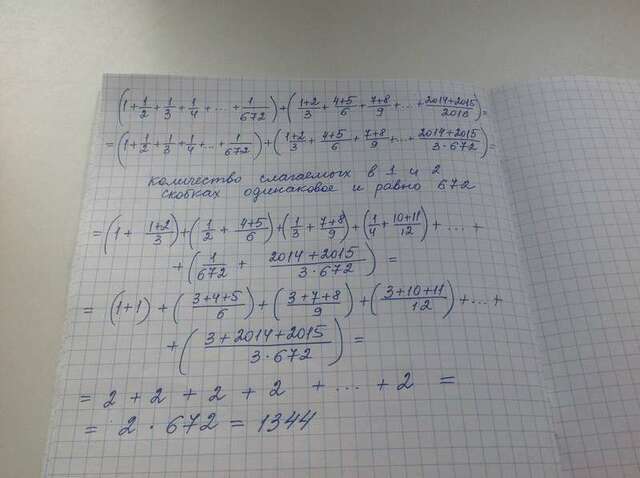 (1+1/2+1/3+1/4+...+1/672)+(1+2/3+4+5/6+7+8/9+...+2014+2015/2016)=
=(1+1/2+1/3+1/4+...+1/672)+(1+2/3+4+5/6+7+8/9+...+2014+2015/3·672)=
количество слагаемых в 1 и 2
скобках одинаковое и равно 672
=(1+1+2/3)+(1/2+4+5/6)+(1/3+7+8/9)+(1/4+10+11/12)+...+
+(1/672+2014+2015/3·672)=
=(1+1)+(3+4+5/6)+(3+7+8/9)+(3+10+11/12)+...+
+(3+2014+2015/3·672)=
=2+2+2+2+...+2=
=2·672=1344